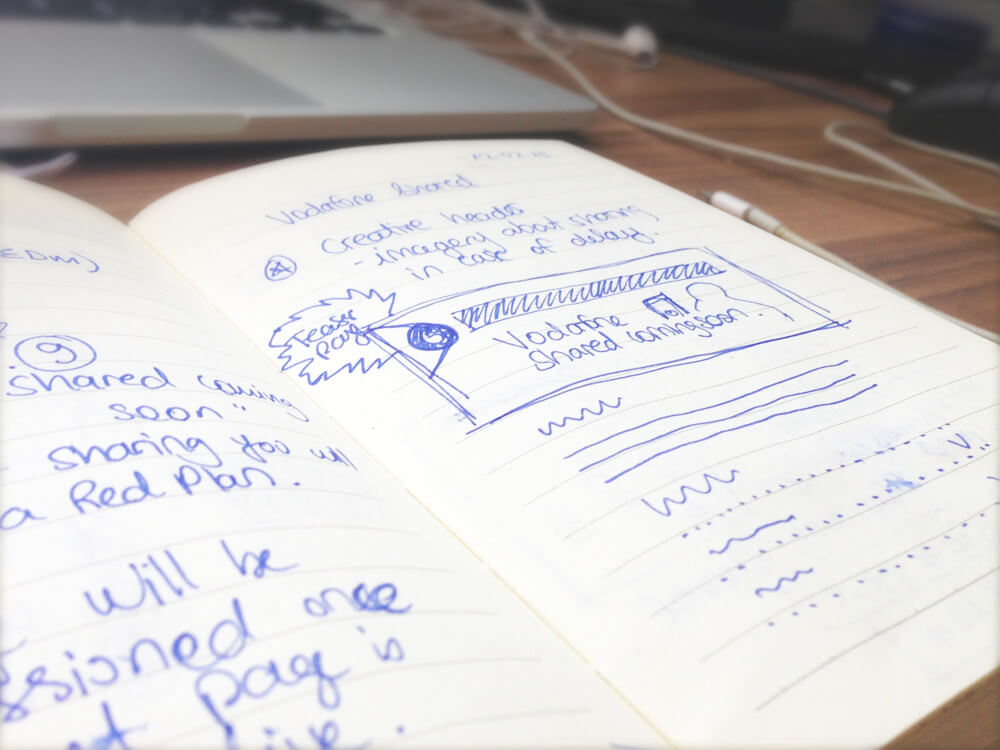 EDM)
9
shared coming
soon"
sharing you will
a Red Plan.
will be
ssioned once
pag is
Vodafone Shared
A
Creative heads
- imagery about sharing
in case of delay.
Teaser
pag
Vodafone
Shared coming soon.